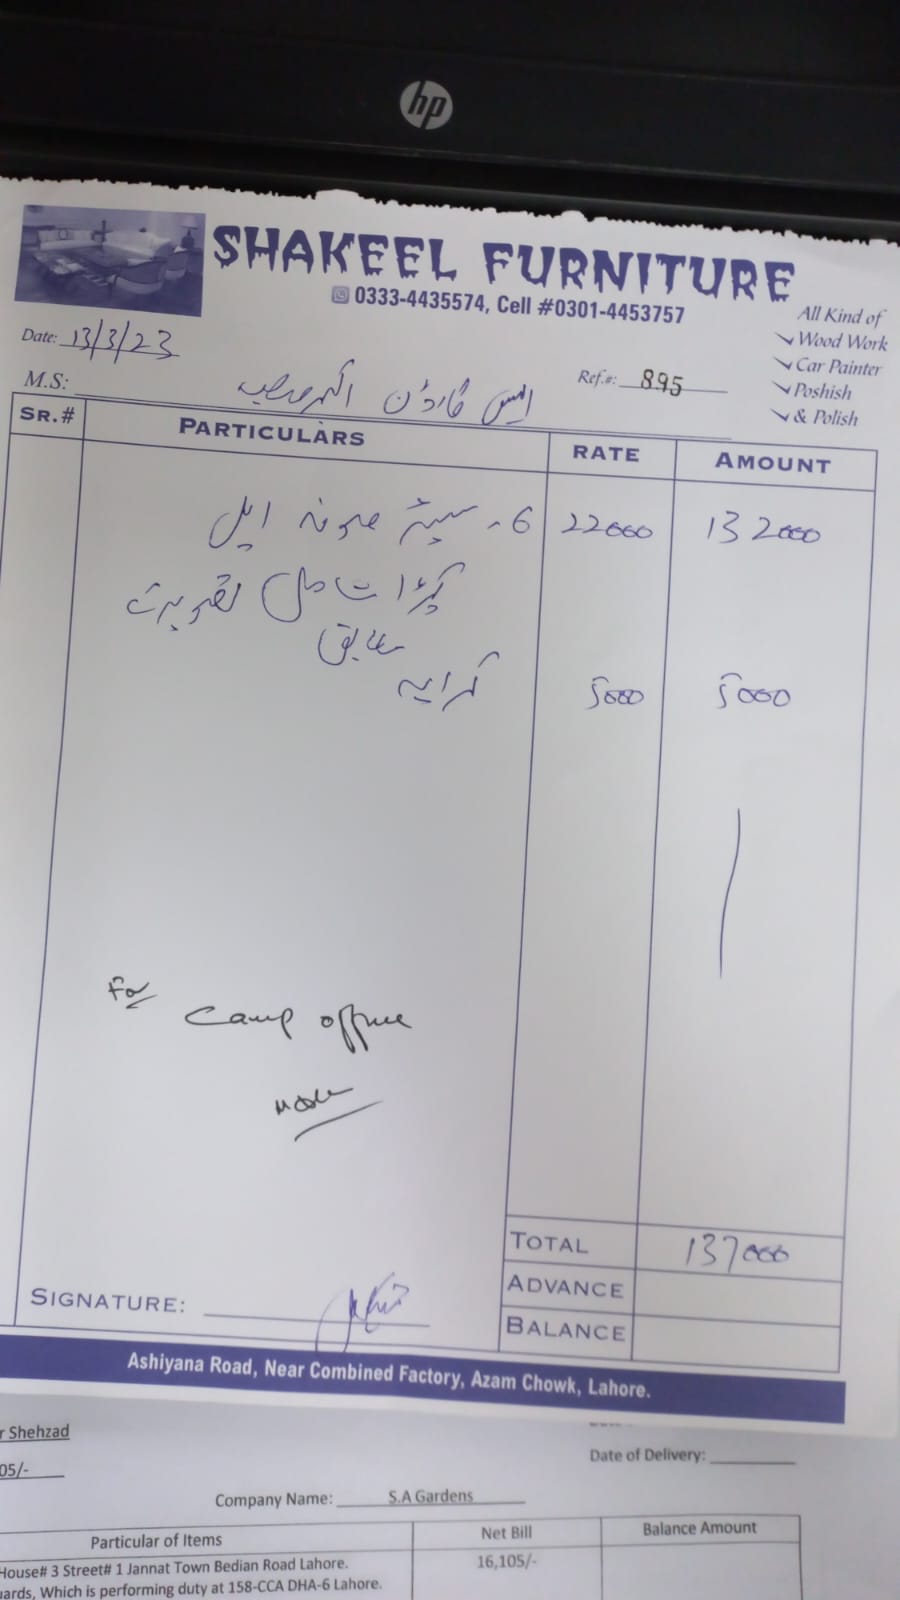 hp
SHAKEEL FURNITURE
0333-4435574, Cell #0301-4453757
All Kind of
Wood Work
Car Painter
Poshish
& Polish
Date: 13/3/23
Ref.#: 895
M.S: ایس گارڈن اکبر صاحب
SR.# PARTICULARS RATE AMOUNT
6 سیٹر صوفہ ایل 22000 132000
کپڑا تصویرکے
مطابق
کرایہ 5000 5000
For
Camp office
TOTAL 137000
ADVANCE
BALANCE
SIGNATURE:
Ashiyana Road, Near Combined Factory, Azam Chowk, Lahore.
r Shehzad
05/-
Date of Delivery:
Company Name: S.A Gardens
Particular of Items Net Bill Balance Amount
House# 3 Street# 1 Jannat Town Bedian Road Lahore. 16,105/-
uards, Which is performing duty at 158-CCA DHA-6 Lahore.